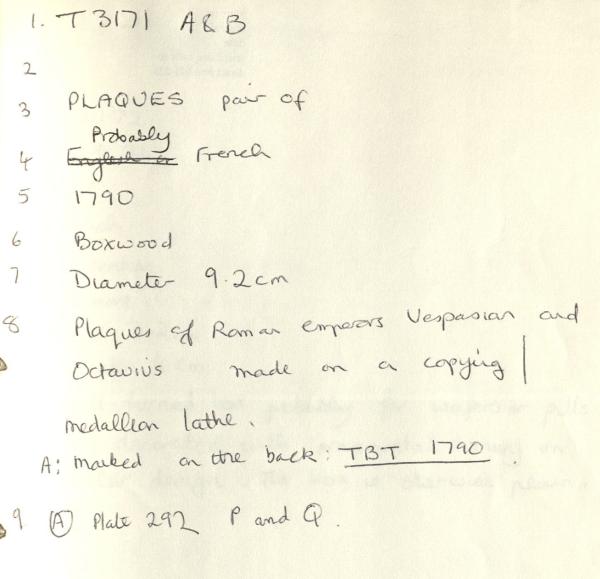 1. T 3171 A & B
2
3 PLAQUES pair of
Probably
4 English or French
5 1790
6 Boxwood
7 Diameter 9.2cm
8 Plaques of Roman emperors Vespasian and
Octavius made on a copying
medallion lathe.
A: marked on the back: TBT 1790.
9 (A) Plate 292 P and Q.